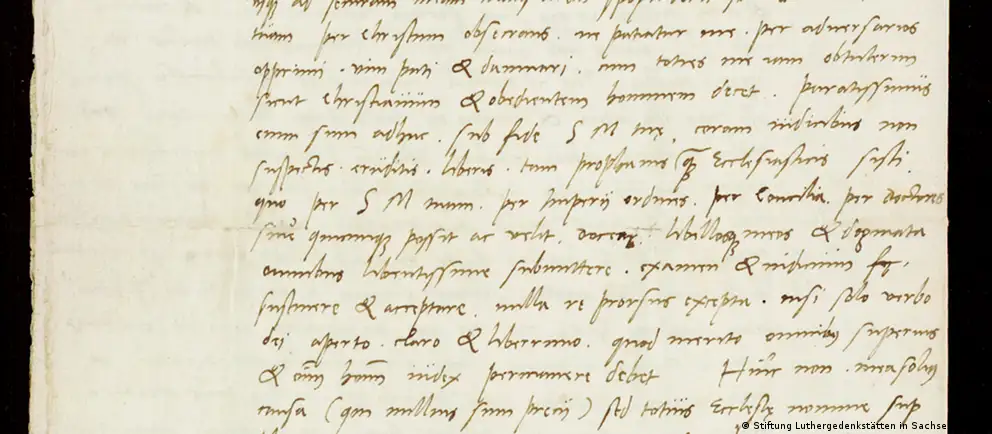 tuam per Christum obsecrans. ne patiatur me. per adversarios
opprimi. vim pati & damnari. cum toties me iam obtulerim
sicut Christianum & obedientem hominem decet. Paratissimus
enim sum adhuc. sub fide S M tuę. coram iudicibus non
suspectis. eruditis. liberis. tam prophanis quam Ecclesiasticis sisti.
quo per S M tuam. per Imperii ordines. per Concilia. per doctores
sive quicunque possit ac velit. docear. libellosque meos & dogmata
omnibus libentissime submittere. examen & iudicium
sustinere & acceptare. nulla re prorsus excepta. nisi solo verbo
dei aperto. claro & liberrimo. quod merito omnibus superius
& omnium hominum iudex permanere debet Hinc non. mea solius
causa (qui nullius sum precii) sed totius Ecclesię nomine sup
© Stiftung Luthergedenkstätten in Sachse